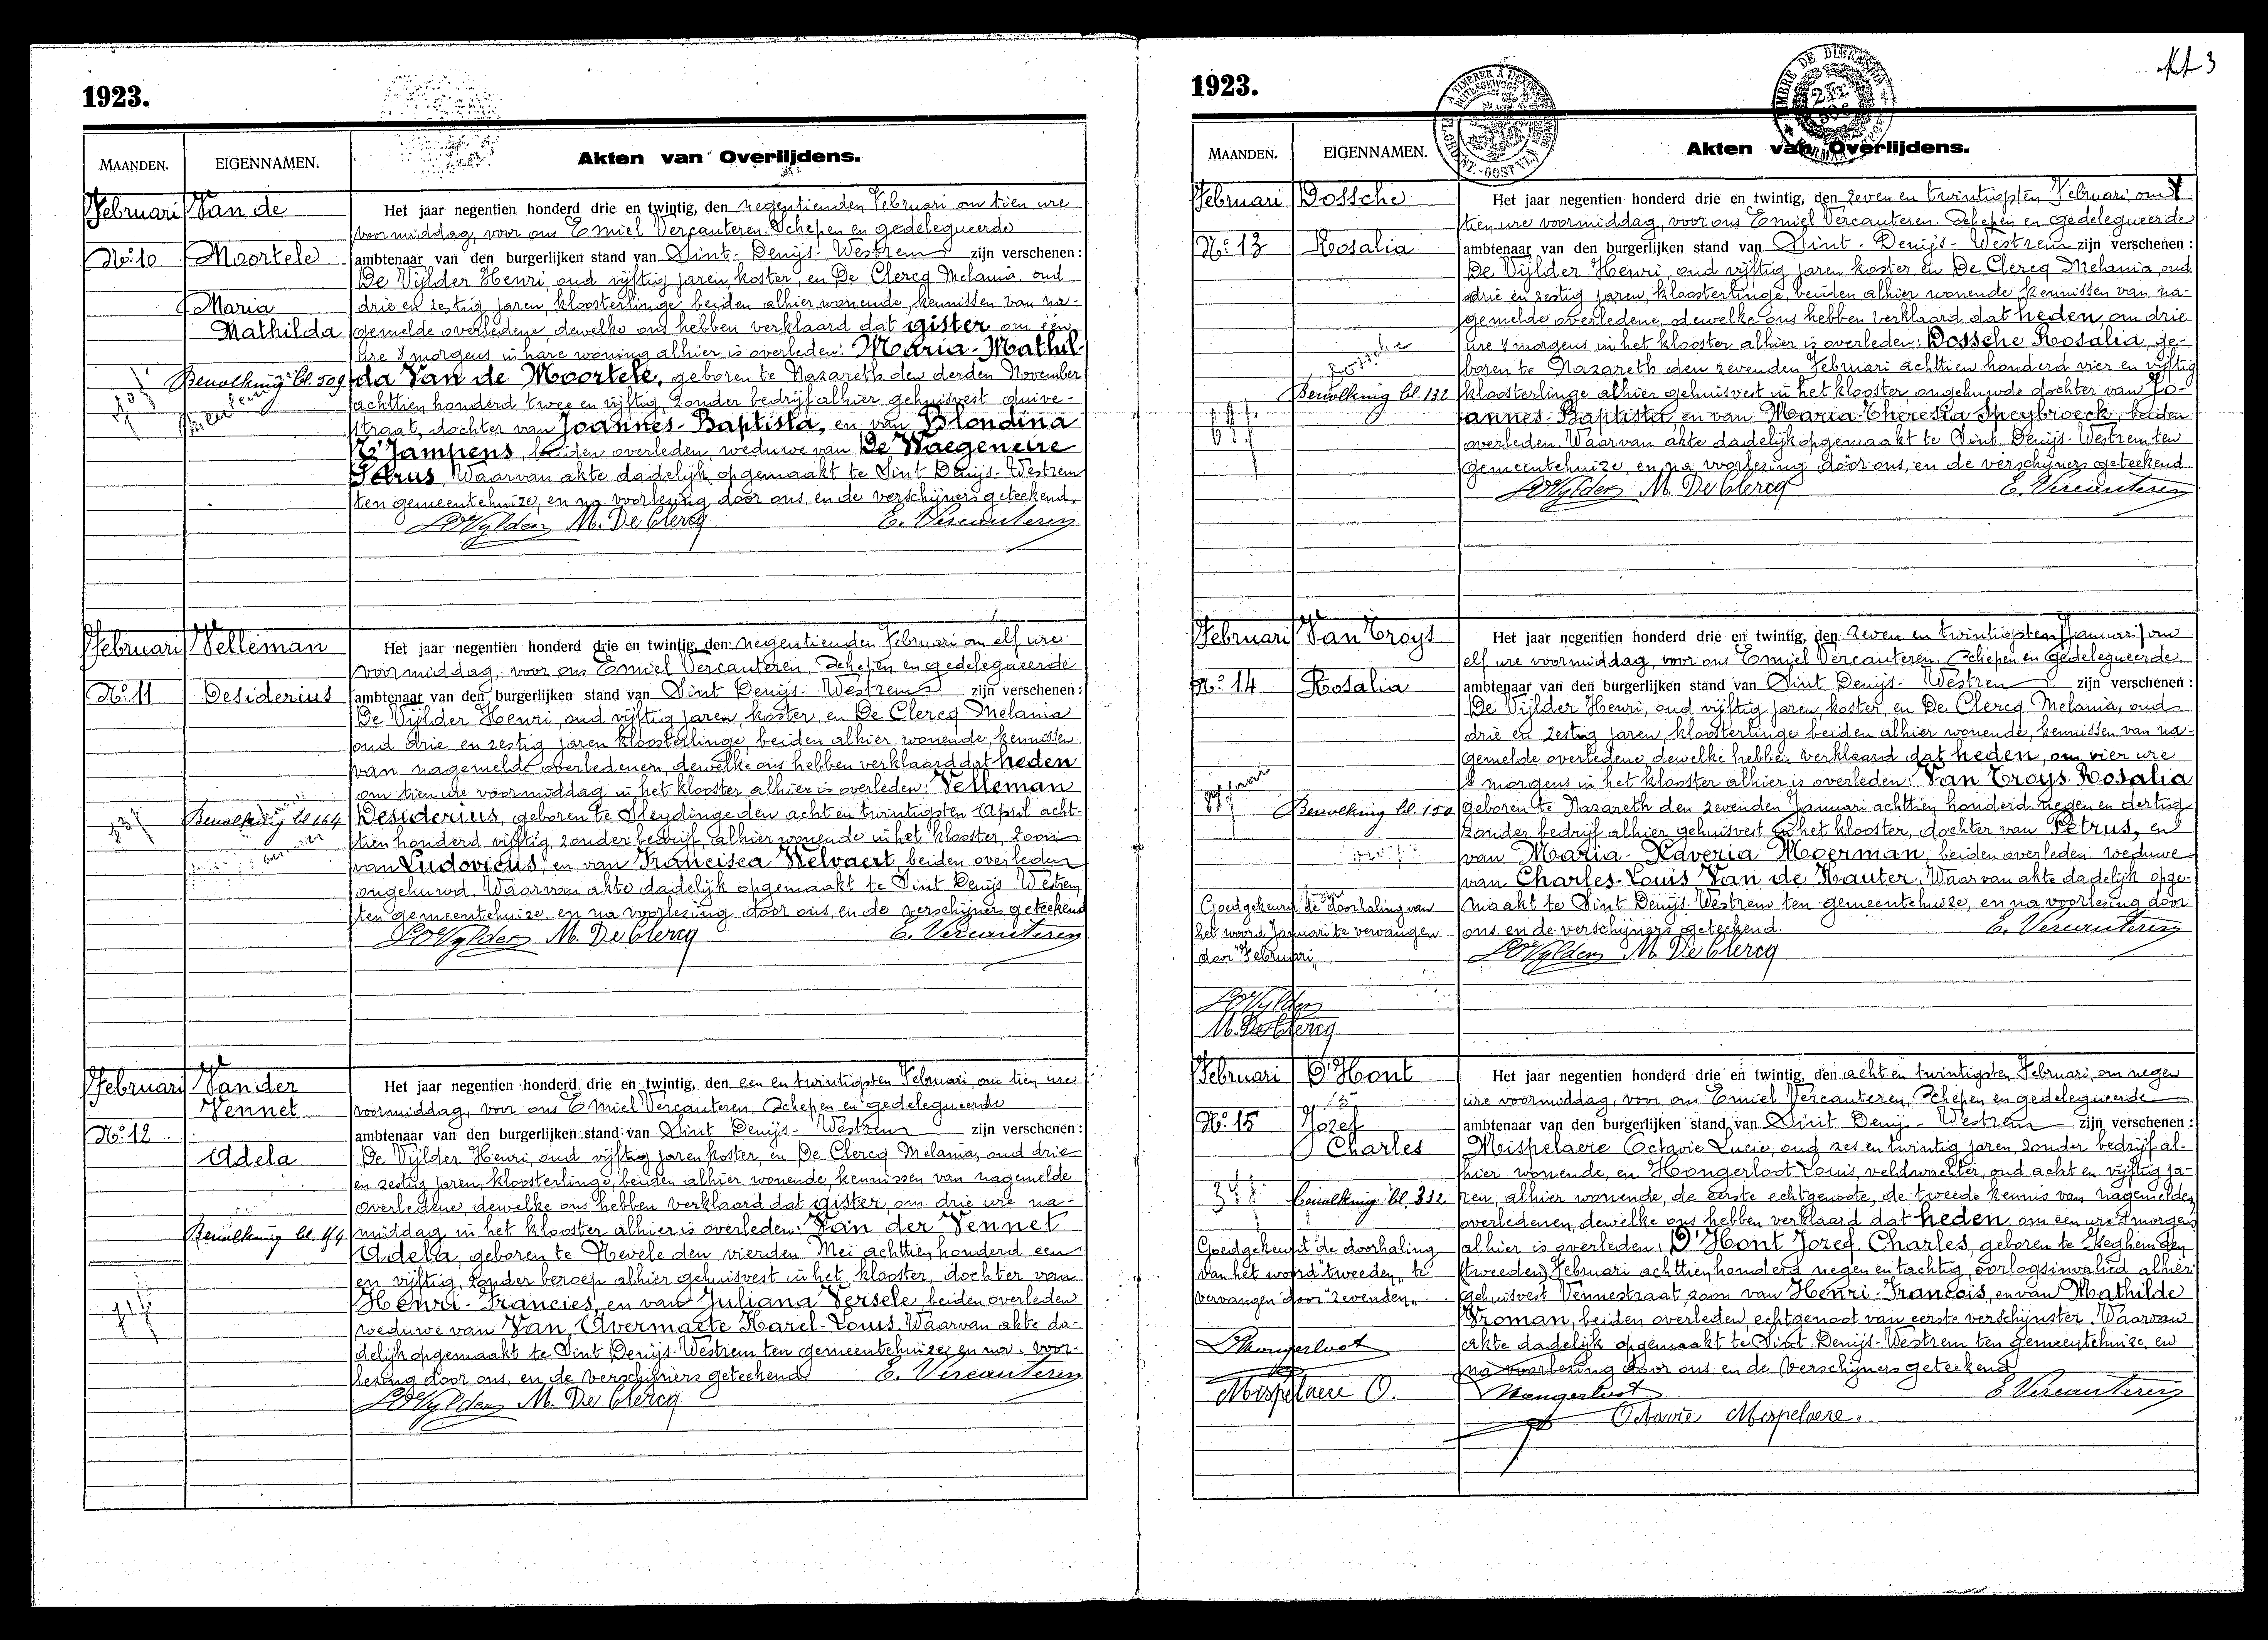 1923.
MAANDEN.
EIGENNAMEN.
Akten van Overlijdens.
Februari
Van de
Moortele
Maria
Mathilda
No. 10
Bevolking bl. 509
Het jaar negentien honderd drie en twintig, den negentienden Februari om tien ure
voormiddag, voor ons Emiel Vercauteren, Schepen en gedelegueerde
ambtenaar van den burgerlijken stand van Sint-Denijs-Westrem zijn verschenen:
De Vijlder Henri, oud vijftig jaren, koster, en De Clercq Melania, oud
drie en zestig jaren, kloosterlinge beiden alhier wonende, kennissen van na-
gemelde overledene, dewelke ons hebben verklaard dat gister om één
ure 's morgens in hare woning alhier is overleden: Maria-Mathil-
da Van de Moortele, geboren te Nazareth den derden November
achttien honderd twee en vijftig, zonder bedrijf alhier gehuisvest duive-
straat, dochter van Joannes-Baptista, en van Blondina
T'Jampens, beiden overleden, weduwe van De Waegeneire
Petrus, Waarvan akte dadelijk opgemaakt te Sint Denijs-Westrem
ten gemeentehuize, en na voorlezing door ons, en de verschijners geteekend.
HDVylder M. De Clercq E. Vercauteren
Februari
Velleman
No. 11
Desiderius
Bevolking bl 164
73 j
Het jaar negentien honderd drie en twintig, den negentienden Februari om elf ure
voormiddag, voor ons Emiel Vercauteren, Schepen en gedelegueerde
ambtenaar van den burgerlijken stand van Sint Denijs-Westrem zijn verschenen:
De Vijlder Henri, oud vijftig jaren, koster, en De Clercq Melania
oud drie en zestig jaren kloosterlinge, beiden alhier wonende, kennissen
van nagemelde overledenen, dewelke ons hebben verklaard dat heden
om tien ure voormiddag in het klooster alhier is overleden: Velleman
Desiderius, geboren te Sleydinge den acht en twintigsten April acht-
tien honderd vijftig, zonder bedrijf, alhier wonende in het klooster, zoon
van Ludovicus, en van Francisca Welvaert, beiden overleden
ongehuwd. Waarvan akte dadelijk opgemaakt te Sint Denijs Westrem
ten gemeentehuize, en na voorlezing door ons, en de verschijners geteekend
HDVylder M. De Clercq E. Vercauteren
Februari
Van der
Vennet
No. 12
Adela
Bevolking bl. 44
71 j
Het jaar negentien honderd drie en twintig, den een en twintigsten Februari, om tien ure
voormiddag, voor ons Emiel Vercauteren, Schepen en gedelegueerde
ambtenaar van den burgerlijken stand van Sint Denijs-Westrem zijn verschenen:
De Vijlder Henri, oud vijftig jaren, koster, en De Clercq Melania, oud drie
en zestig jaren, kloosterlinge, beiden alhier wonende kennissen van nagemelde
overledene, dewelke ons hebben verklaard dat gister, om drie ure na-
middag in het klooster alhier is overleden: Van der Vennet
Adela, geboren te Nevele den vierden Mei achttien honderd een
en vijftig, zonder beroep alhier gehuisvest in het klooster, dochter van
Henri-Francies, en van Juliana Versele, beiden overleden
weduwe van Van Avermaete Karel-Louis. Waarvan akte da-
delijk opgemaakt te Sint Denijs-Westrem ten gemeentehuize, en na voor-
lezing door ons, en de verschijners geteekend E. Vercauteren
HDVylder M. De Clercq
1923.
MAANDEN.
EIGENNAMEN.
Akten van Overlijdens.
Februari
Dossche
No. 13
Rosalia
Dossche
Bevolking bl. 132
Het jaar negentien honderd drie en twintig, den zeven en twintigsten Februari om
tien ure voormiddag, voor ons Emiel Vercauteren, Schepen en gedelegueerde
ambtenaar van den burgerlijken stand van Sint-Denijs-Westrem zijn verschenen:
De Vijlder Henri, oud vijftig jaren koster, en De Clercq Melania, oud
drie en zestig jaren, kloosterlinge, beiden alhier wonende, kennissen van na-
gemelde overledene, dewelke ons hebben verklaard dat heden, om drie
ure 's morgens in het klooster alhier is overleden: Dossche Rosalia, ge-
boren te Nazareth den zevenden Februari achttien honderd vier en vijftig
kloosterlinge alhier gehuisvest in het klooster ongehuwde dochter van Jo-
annes-Baptista, en van Maria-Theresia Speybroeck, beiden
overleden. Waarvan akte dadelijk opgemaakt te Sint Denijs-Westrem ten
gemeentehuize, en na voorlezing door ons, en de verschijners geteekend.
HDVylder M. De Clercq E. Vercauteren
Februari
Van Troys
No. 14
Rosalia
Bevolking bl. 150
Goedgekeurd de doorhaling van
het woord Januari te vervangen
door "Februari"
HDVylder
M. De Clercq
Het jaar negentien honderd drie en twintig, den zeven en twintigsten (Januari) om
elf ure voormiddag, voor ons Emiel Vercauteren, Schepen en Gedelegueerde
ambtenaar van den burgerlijken stand van Sint Denijs-Westrem zijn verschenen:
De Vijlder Henri, oud vijftig jaren, koster, en De Clercq Melania, oud
drie en zestig jaren, kloosterlinge beiden alhier wonende, kennissen van na-
gemelde overledene, dewelke hebben verklaard dat heden, om vier ure
's morgens in het klooster alhier is overleden: Van Troys Rosalia
geboren te Nazareth den zevenden Januari achttien honderd negen en dertig
zonder bedrijf alhier gehuisvest in het klooster, dochter van Petrus, en
van Maria-Xaveria Moerman, beiden overleden weduwe
van Charles-Louis Van de Kauter. Waarvan akte dadelijk opge-
maakt te Sint Denijs-Westrem ten gemeentehuize, en na voorlezing door
ons en de verschijners geteekend. E. Vercauteren
HDVylder M. De Clercq
Februari
D'Hont
No. 15
Jozef
Charles
34 j.
Bevolking bl. 332
Goedgekeurd de doorhaling
van het woord "tweeden" te
vervangen door "zevenden".
LHongerloot
Mispelaere O.
Het jaar negentien honderd drie en twintig, den acht en twintigsten Februari, om negen
ure voormiddag, voor ons Emiel Vercauteren, Schepen en gedelegueerde
ambtenaar van den burgerlijken stand van Sint Denijs-Westrem zijn verschenen:
Mispelaere Octavie Lucie, oud zes en twintig jaren, zonder bedrijf al-
hier wonende, en Hongerloot Louis, veldwachter, oud acht en vijftig ja-
ren, alhier wonende, de eerste echtgenoote, de tweede kennis van nagemelden
overledenen, dewelke ons hebben verklaard dat heden om een ure 's morgens
alhier is overleden: D'Hont Jozef Charles, geboren te Iseghem den
(tweeden) Februari achttien honderd negen en tachtig, oorlogsinvalied alhier
gehuisvest Vennestraat, zoon van Henri-Francois, en van Mathilde
Vroman, beiden overleden, echtgenoot van eerste verschijnster. Waarvan
akte dadelijk opgemaakt te Sint Denijs-Westrem ten gemeentehuize, en
na voorlezing door ons, en de verschijners geteekend
Hongerloot E. Vercauteren
Octavie Mispelaere.